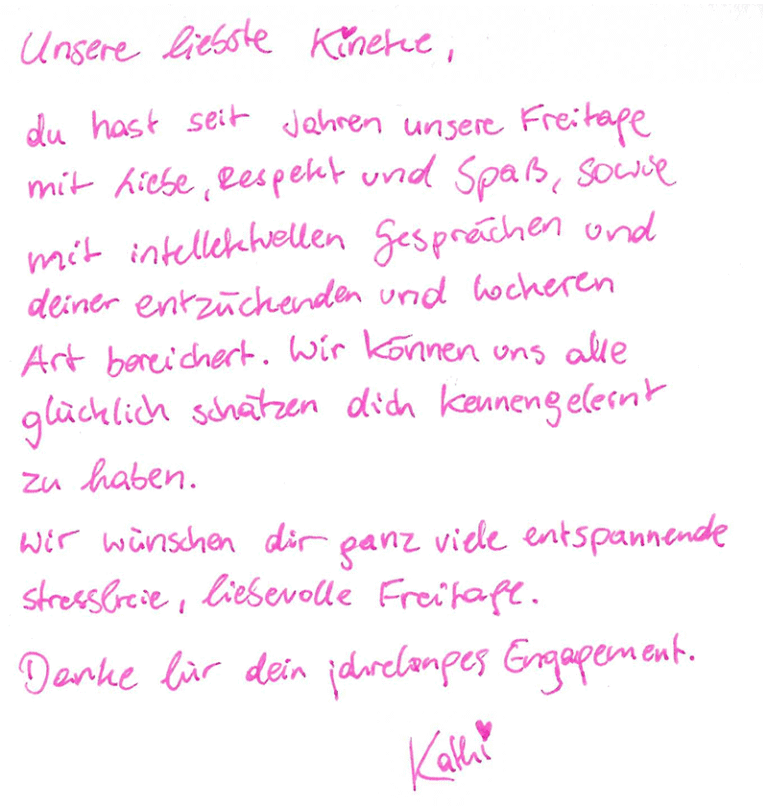 Unsere liebste Kineke,
du hast seit Jahren unsere Freitage
mit Liebe, Respekt und Spaß, sowie
mit intellektuellen Gesprächen und
deiner entzückenden und lockeren
Art bereichert. Wir können uns alle
glücklich schätzen dich kennengelernt
zu haben.
Wir wünschen dir ganz viele entspannende
stressfreie, liebevolle Freitage.
Danke für dein jahrelanges Engagement.
Kathi